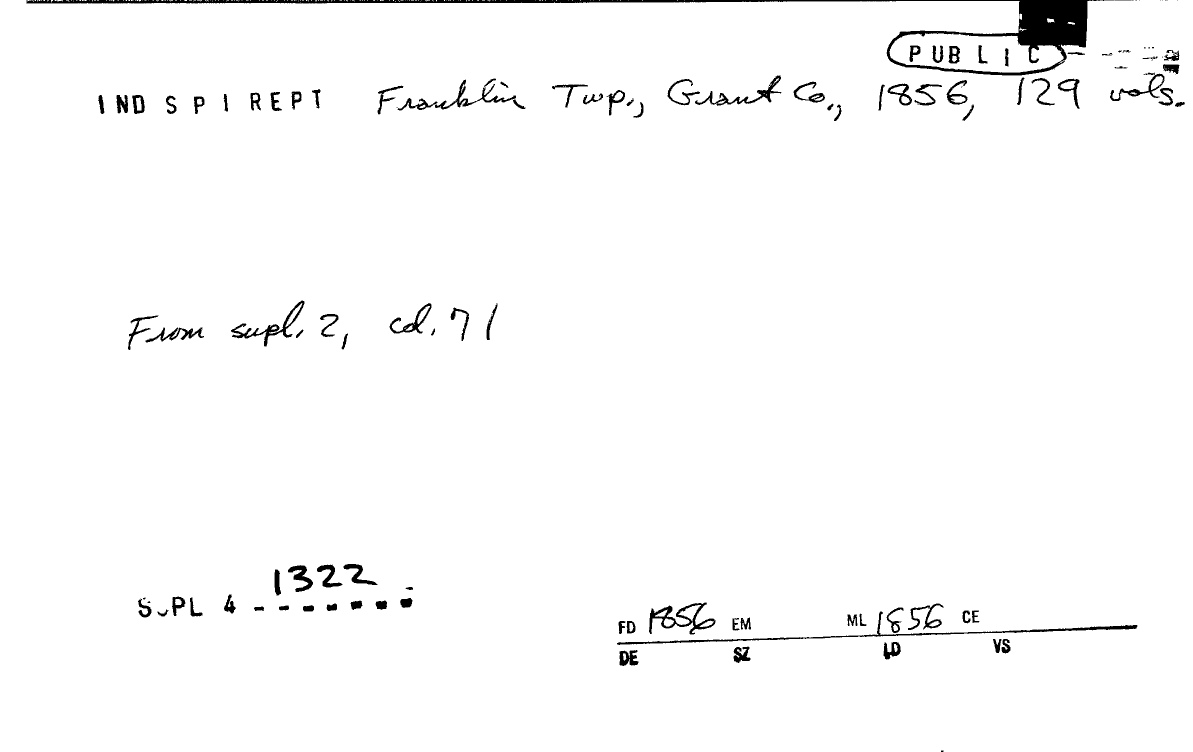 PUBLIC
INDSPIREPT Franklin Twp., Grant Co., 1856, 129 vols.
From supl. 2, col. 71
1322
SUPL 4 -------
FD 1856 EM ML 1856 CE
DE SZ LD VS